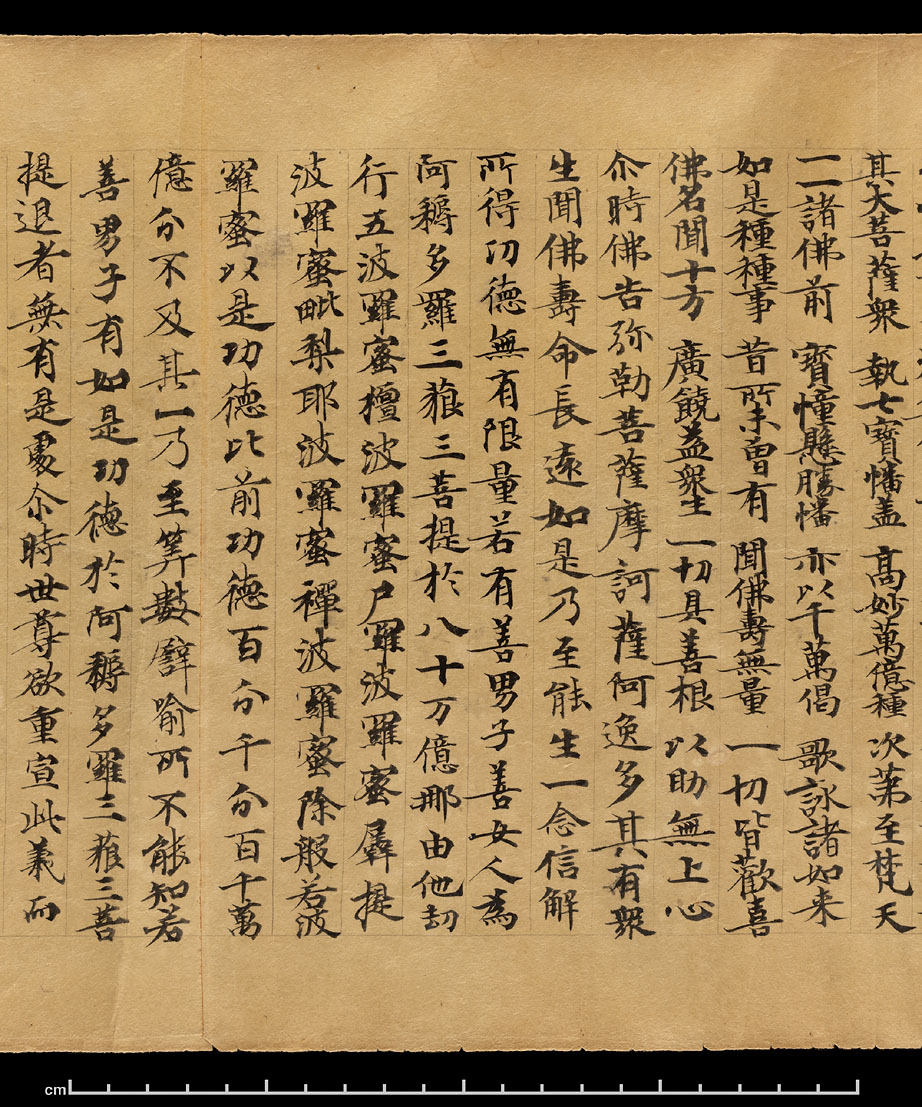 其大菩薩衆 執七寶幡盖 高妙萬億種 次苐至梵天
一一諸佛前 寶幢懸勝幡 亦以千萬偈 歌詠諸如来
如是種種事 昔所未曽有 聞佛壽無量 一切皆歡喜
佛名聞十方 廣饒益衆生 一切具善根 以助無上心
尒時佛告弥勒菩薩摩訶薩阿逸多其有衆
生聞佛壽命長遠如是乃至能生一念信解
所得功德無有限量若有善男子善女人為
阿耨多羅三藐三菩提於八十万億那由他劫
行五波羅蜜檀波羅蜜尸羅波羅蜜羼提
波羅蜜毗梨耶波羅蜜禪波羅蜜除般若波
羅蜜以是功德比前功德百分千分百千萬
億分不及其一乃至筭數譬喻所不能知若
善男子有如是功德於阿耨多羅三藐三菩
提退者無有是處尒時世尊欲重宣此義而